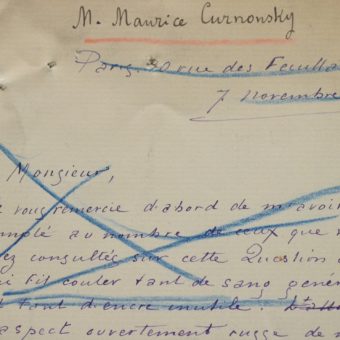 M. Maurice Curnonsky
Paris, 30 rue des Feuilla
7 novembre
Monsieur,
vous remercie d'abord de m'avoir
mplé au nombre de ceux que v
ez consultés sur cette Question
i fit couler tant de sang géné
t tant d'encre inutile.
aspect ouvertement russe de